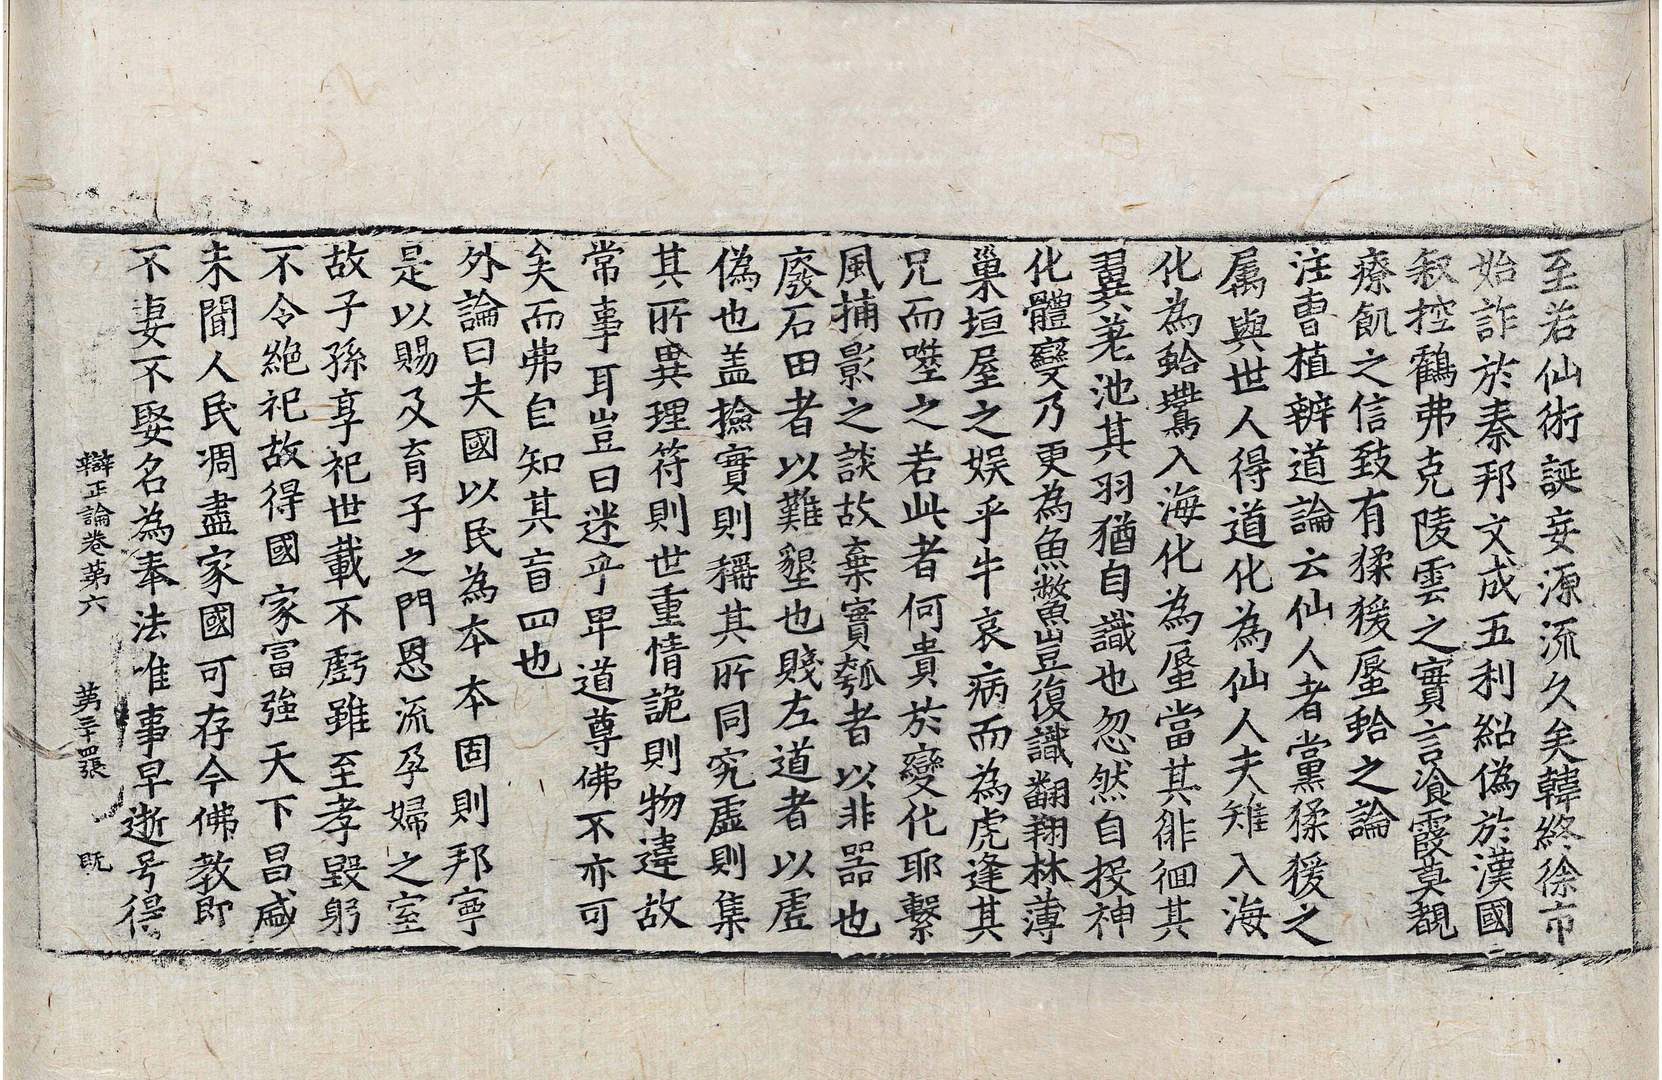 至若仙術誕妄源流久矣韓終徐市
始詐於秦邦文成五利紹偽於漢國
叙控鶴弗克陵雲之實言飡霞莫覩
療飢之信致有猱猨蜃蛤之論
注曺植辨道論云仙人者黨猱猨之
属與世人得道化為仙人夫雉入海
化為蛤鷰入海化為蜃當其徘徊其
翼差池其羽猶自識也忽然自投神
化體變乃更為魚鱉豈復識翻翔林薄
巢垣屋之娱乎牛哀病而為虎逢其
兄而噬之若此者何貴於變化耶繫
風捕影之談故棄實瓠者以非器也
廢石田者以難墾也賤左道者以虛
偽也盖撿實則稱其所同究虛則集
其所異理符則世重情詭則物違故
常事耳豈曰迷乎卑道尊佛不亦可
矣而弗自知其盲四也
外論曰夫國以民為本本固則邦寧
是以賜及育子之門恩流孕婦之室
故子孫享祀世載不虧雖至孝毀躬
不令絶祀故得國家富強天下昌盛
未聞人民凋盡家國可存今佛教即
不妻不娶名為奉法唯事早逝号得
辯正論卷第六 第三十四張 旣